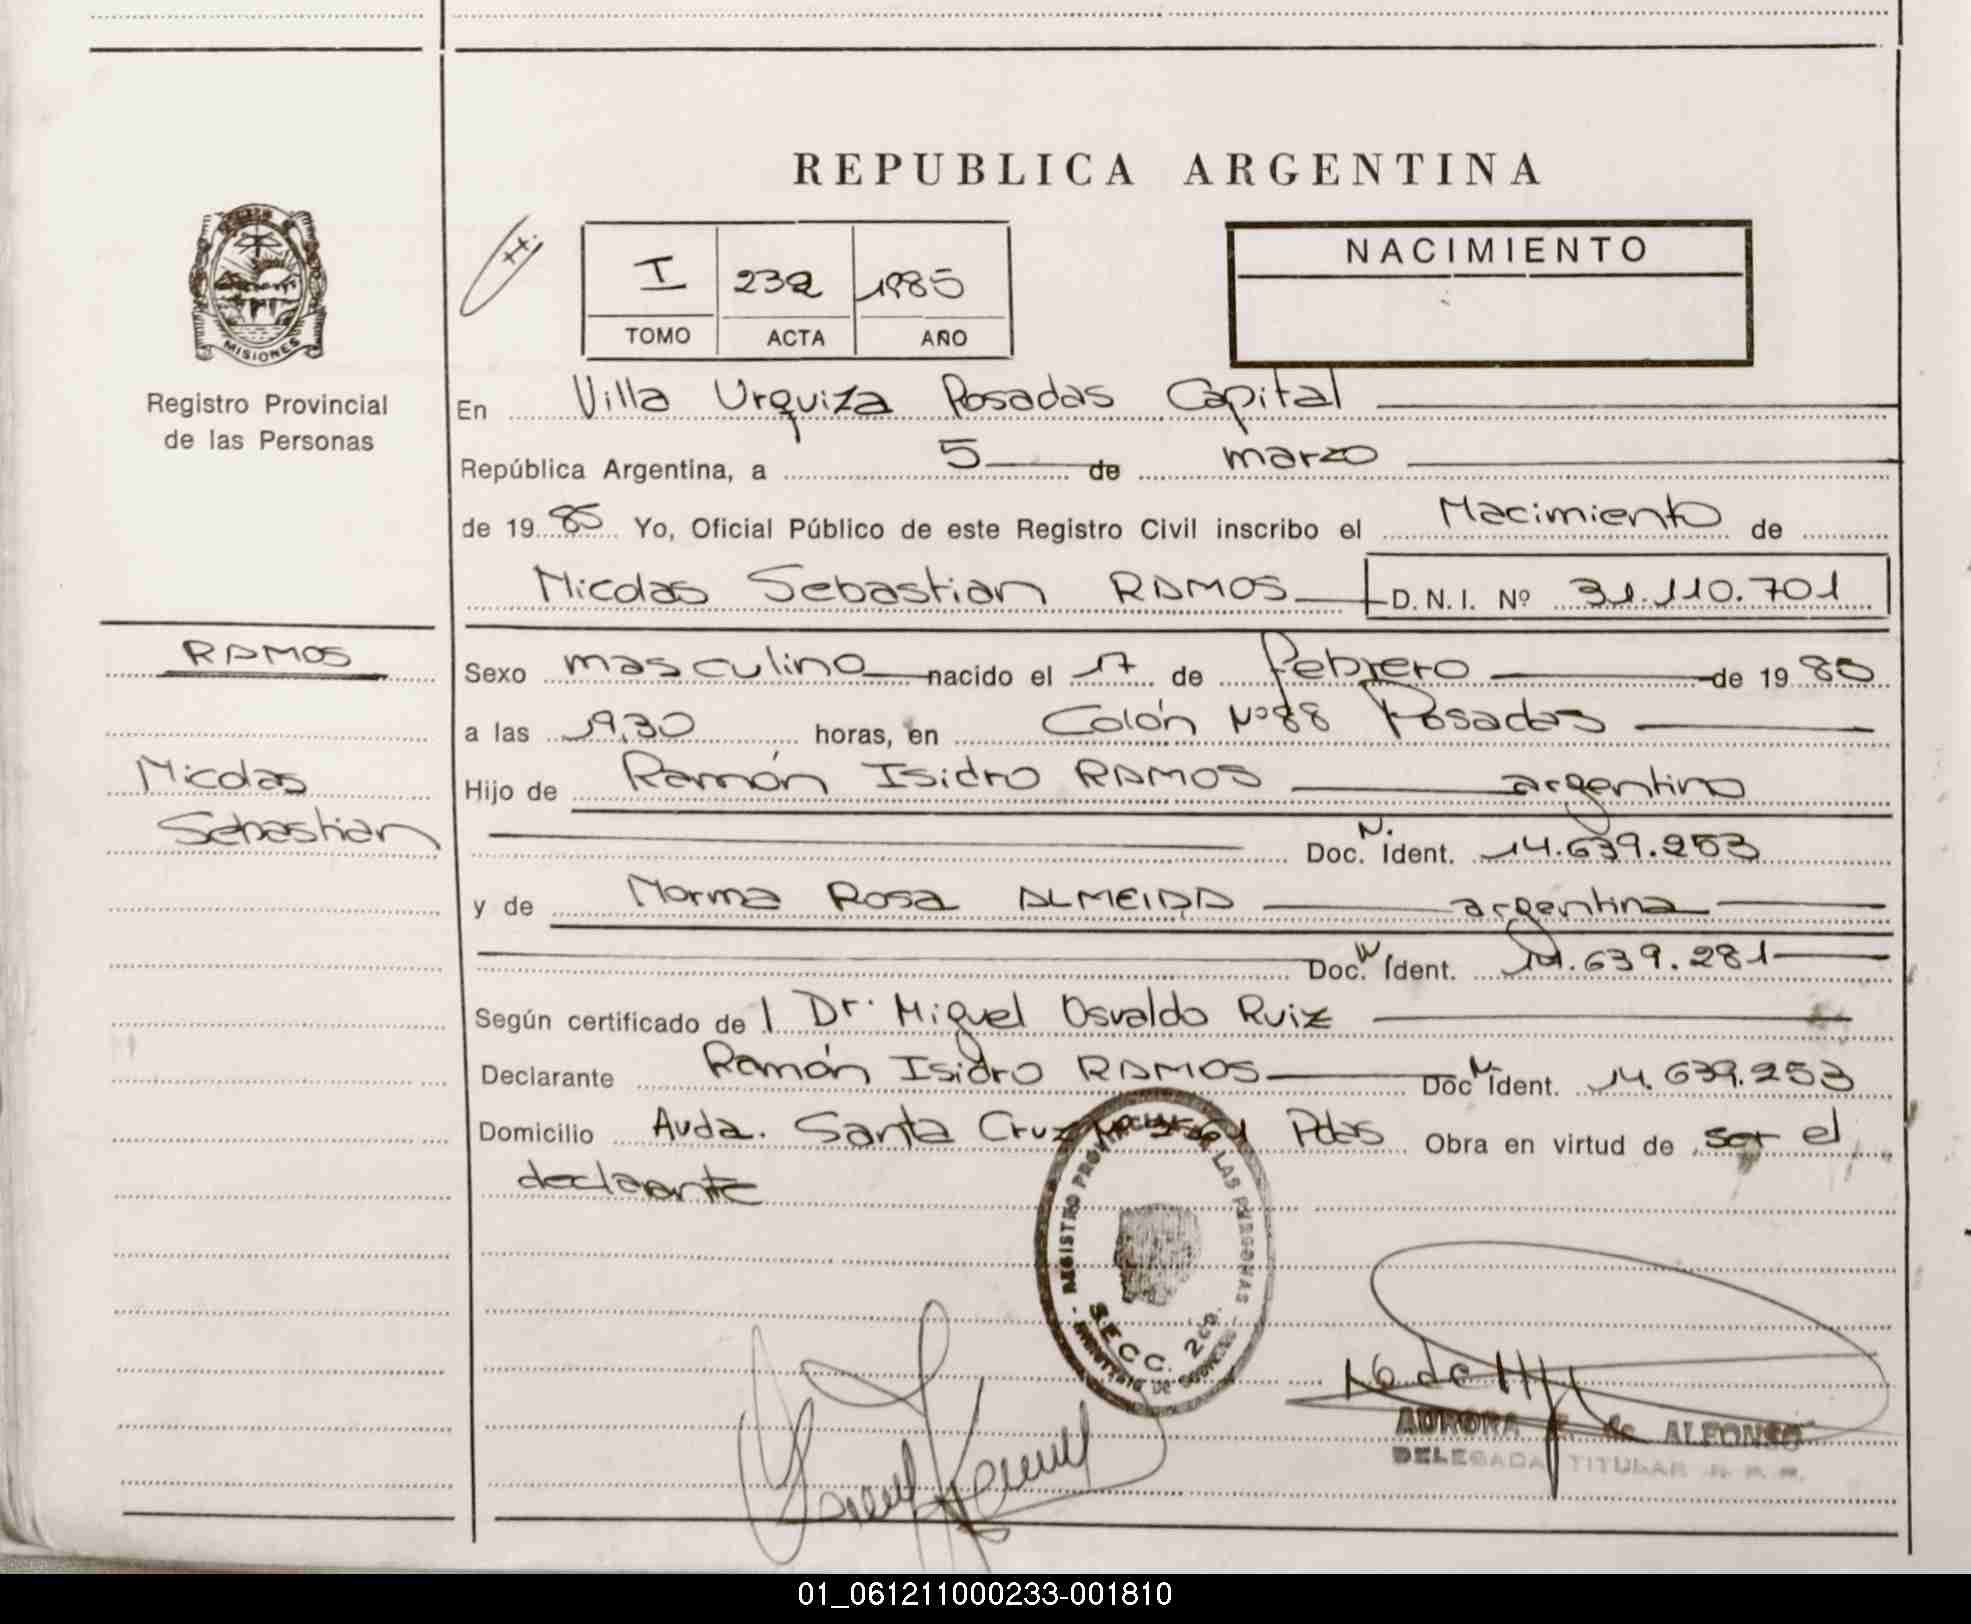 REPUBLICA ARGENTINA
MISIONES
Registro Provincial
de las Personas
I 232 1985
TOMO ACTA AÑO
NACIMIENTO
En Villa Urquiza Posadas Capital
República Argentina, a 5 de marzo
de 1985 Yo, Oficial Público de este Registro Civil inscribo el Nacimiento de
Nicolas Sebastian RAMOS D.N.I. Nº 31.110.701
RAMOS
Nicolas
Sebastian
Sexo masculino nacido el 17 de febrero de 1985
a las 19.30 horas, en Colón Nº 88 Posadas
Hijo de Ramón Isidro RAMOS argentino
Doc. N. Ident. 14.639.253
y de Norma Rosa ALMEIDA argentina
Doc. N Ident. 14.639.281
Según certificado de l Dr. Miguel Osvaldo Ruiz
Declarante Ramón Isidro RAMOS Doc N. Ident. 14.639.253
Domicilio Avda. Santa Cruz Pdas Obra en virtud de ser el
declarante
REGISTRO PROVINCIAL DE LAS PERSONAS
SECC. 2da.
MINISTERIO DE GOBIERNO
AURORA de ALFONSO
DELEGADA TITULAR R. P. P.
01_061211000233-001810